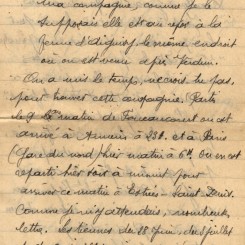 ma compagnie, comme je le
supposais elle est au repos à la
ferme d' le même endroit
où on est venu après Verdun.
On a mis le temps, ne crois tu pas,
pour trouver cette compagnie. Parti
le 9 le matin de on est
arrivé à Amiens à 23h. et à Paris
(Gare du nord hier matin à 6h. On en est
reparti hier soir à minuit pour
arriver ce matin à Estrées - Saint Denis.
Comme je m'y attendais, nombreuses
lettres. les tiennes du 28 juin, du 3 juillet